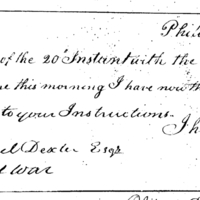 Phil
of the 20' Instant with the
this morning I have now th
to your Instructions.
I h
el Dexter Esqr
War